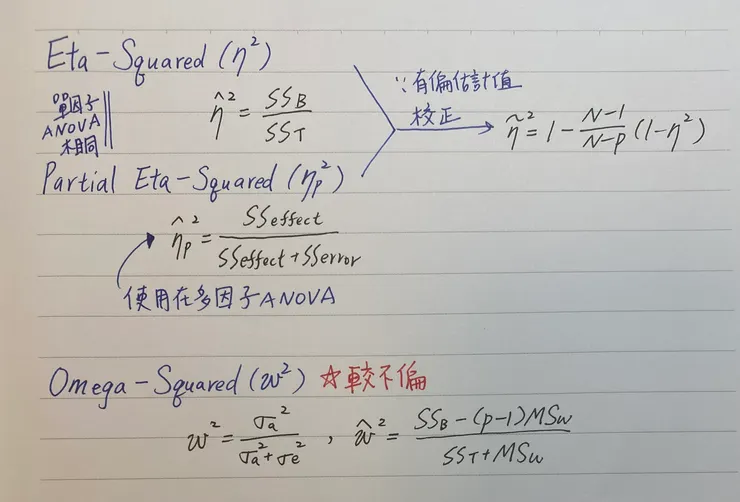 Eta-Squared (η²)
單因子
ANOVA
相同
η̂² = SS_B / SS_T
∵有偏估計值
校正
η̃² = 1 - (N-1)/(N-p) (1-η²)
Partial Eta-Squared (ηp²)
η̂p² = SSeffect / (SSeffect + SSerror)
使用在多因子ANOVA
Omega-Squared (w²) ☆較不偏
w² = σa² / (σa² + σe²) , ŵ² = (SS_B - (p-1)MSw) / (SS_T + MSw)